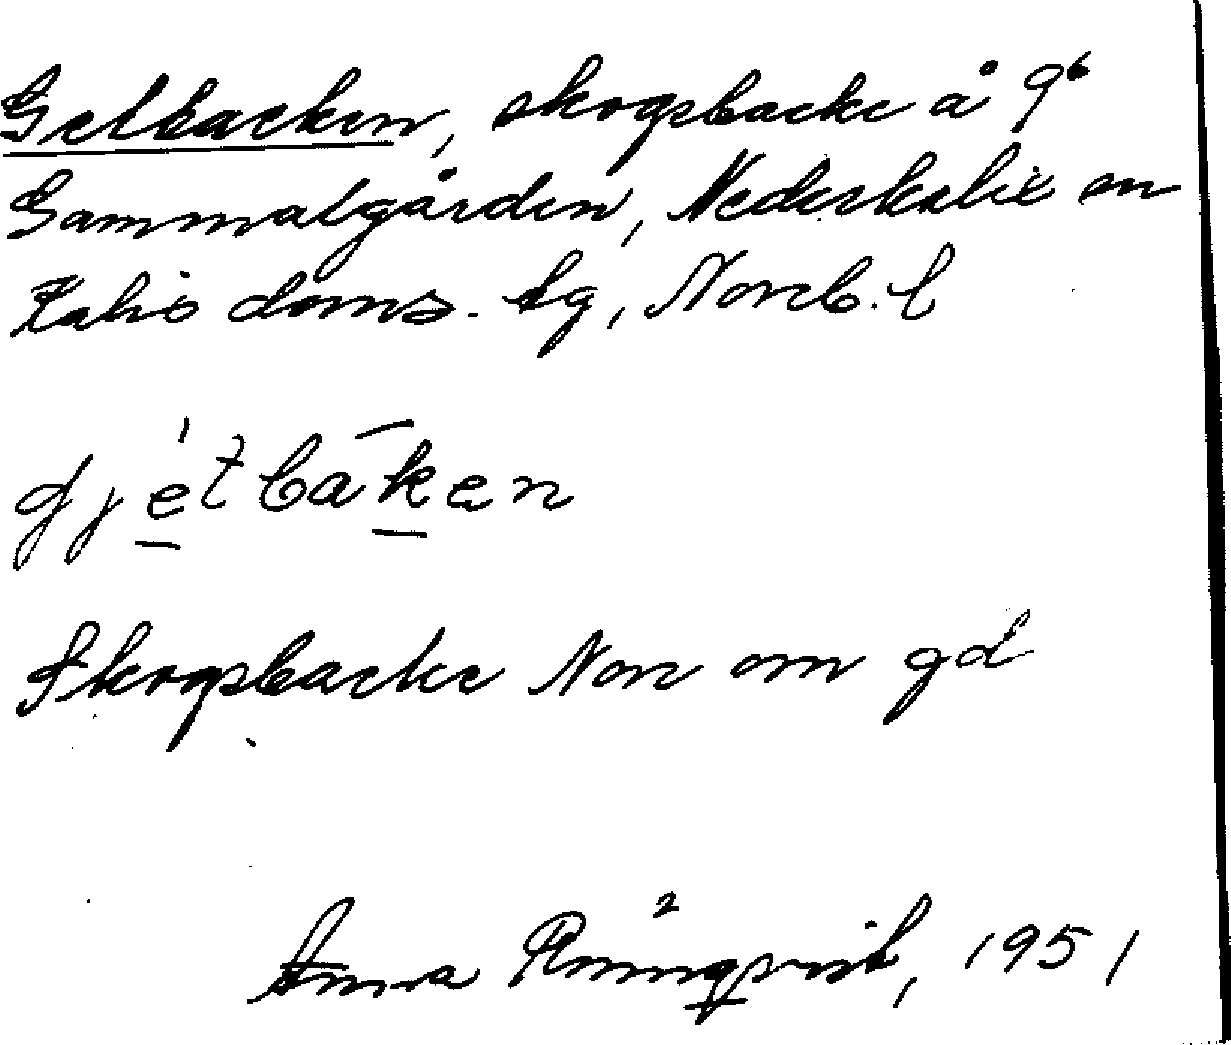 Getbacken, skogsbacke å 9⁶
Gammalgården, Nederkalix sn
Kalix doms. tg, Norrb. l
gjétbāken
Skogsbacke Norr om gd
Anna Rönnqvist, 1951